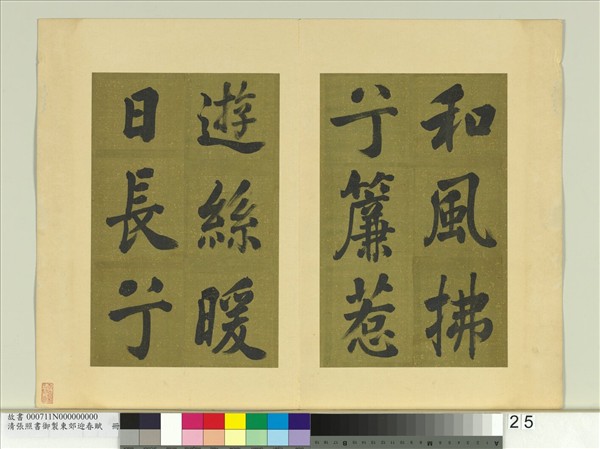 和風拂
兮簾惹
遊絲暖
日長兮
故書 000711N000000000
清張照書御製東郊迎春賦 冊
25